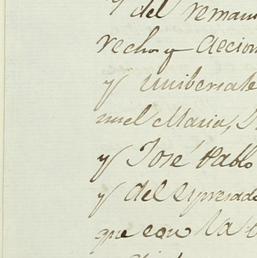 y del reman
recho y accion
y unibersale
nuel Maria,
y José Pablo
y del espresado
que con la